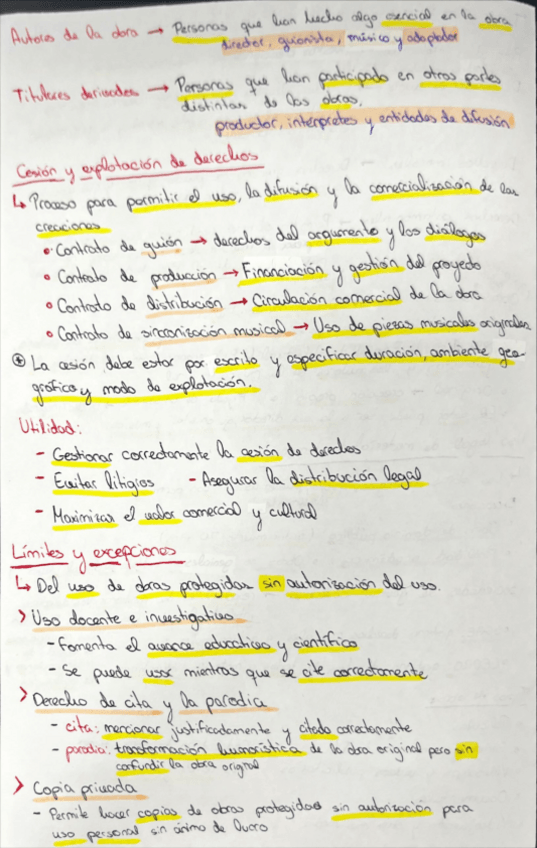 Autores de la obra → Personas que han hecho algo esencial en la obra
director, guionista, músico y adaptador
Titulares derivados → Personas que han participado en otras partes
distintas de las obras.
productor, intérpretes y entidades de difusión
Cesión y explotación de derechos
↳ Proceso para permitir el uso, la difusión y la comercialización de las
creaciones
• Contrato de guión → derechos del argumento y los diálogos
• Contrato de producción → Financiación y gestión del proyecto
• Contrato de distribución → Circulación comercial de la obra
• Contrato de sincronización musical → Uso de piezas musicales originales
⊛ La cesión debe estar por escrito y especificar duración, ambiente geo-
gráfico y modo de explotación.
Utilidad:
- Gestionar correctamente la cesión de derechos
- Evitar litigios - Asegurar la distribución legal
- Maximizar el valor comercial y cultural
Límites y excepciones
↳ Del uso de obras protegidas sin autorización del uso.
> Uso docente e investigativo
- Fomenta el avance educativo y científico
- Se puede usar mientras que se cite correctamente
> Derecho de cita y la parodia
- cita: mencionar justificadamente y citado correctamente
- parodia: transformación humorística de la obra original pero sin
confundir la obra original
> Copia privada
- Permite hacer copias de obras protegidas sin autorización para
uso personal sin ánimo de lucro